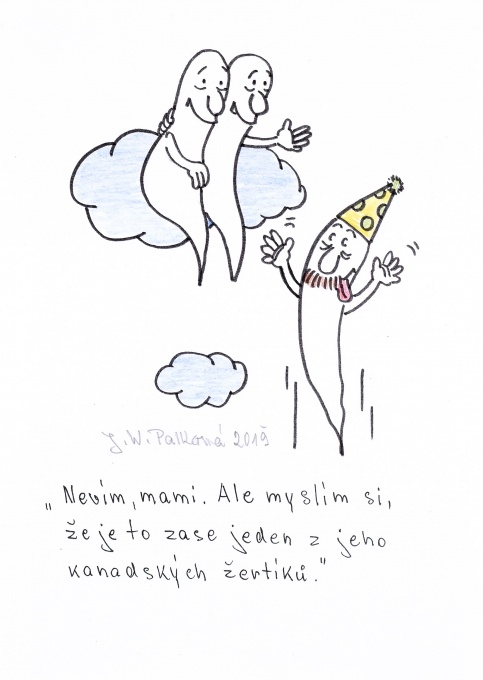 J.W. Palkovná 2019
„Nevím, mami. Ale myslím si,
že je to zase jeden z jeho
kanadských žertíků."